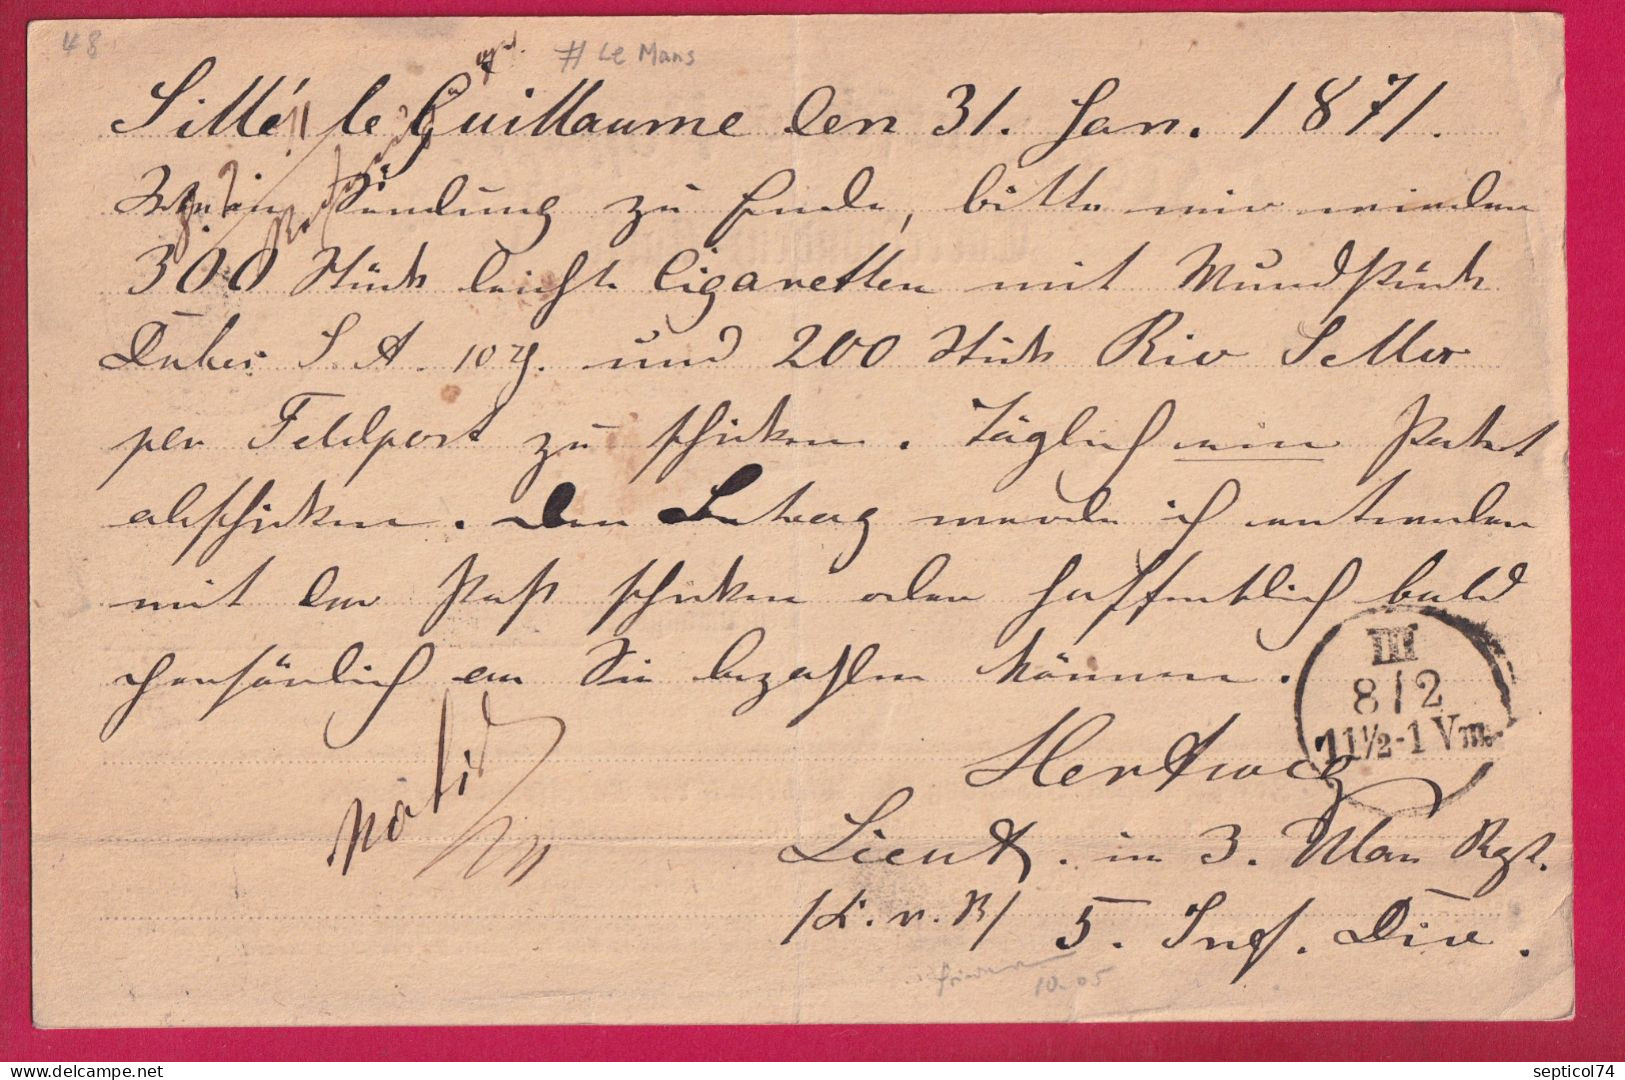 48
# Le Mans
Sillé le Guillaume den 31. Jan. 1871.
Sendung zu Ende, bitte mir wieder
300 Stück leichte Cigaretten mit Mundstück
S. A. und 200 Stück
per Feldpost zu schicken. Täglich ein Paket
abschicken. Den Betrag werde ich entweder
mit der Post schicken oder hoffentlich bald
persönlich an Sie bezahlen können.
III
8 / 2
11½-1 Vm.
Lieut. im 3. Ulan Rgt.
5. Inf. Div.
10.05
delcampe.net
septicol74